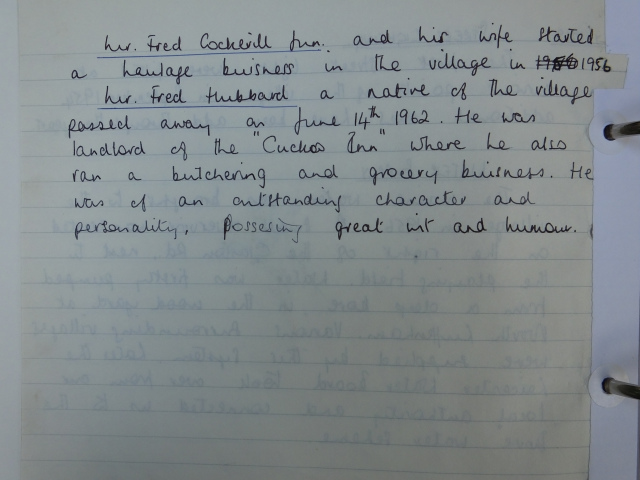 Mr. Fred Cockerill Jun. and his wife started
a haulage buisness in the village in 1956
Mr. Fred Hubbard a native of the village
passed away on June 14th 1962. He was
landlord of the "Cuckoo Inn" where he also
ran a butchering and grocery buisness. He
was of an outstanding character and
personality, possesing great wit and humour.